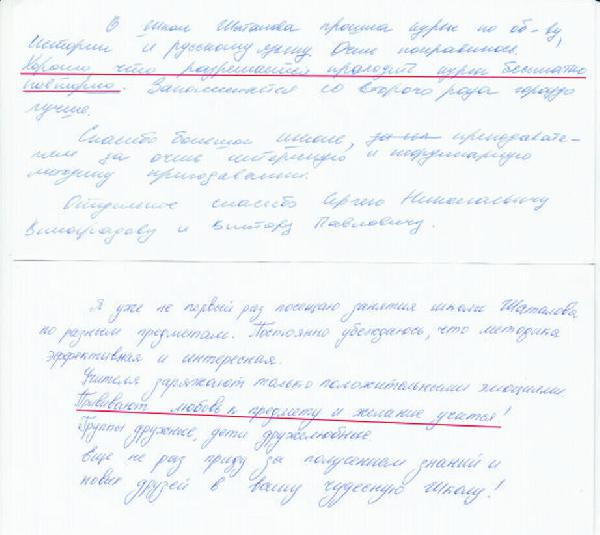 В школе Шаталова прошла курсы по об-ву,
истории и русскому языку. Очень понравилось.
Хорошо что разрешается проходить курсы бесплатно
повторно. Запоминается со второго раза гораздо
лучше.
Спасибо большое школе, преподавате-
лям за очень интересную и неординарную
методику преподавания.
Отдельное спасибо Сергею Николаевичу
Виноградову и Виктору Павловичу.
Я уже не первый раз посещаю занятия школы Шаталова
по разным предметам. Постоянно убеждаюсь, что методика
эффективная и интересная.
Учителя заряжают только положительными эмоциями
Прививают любовь к предмету и желание учится!
Группы дружные, дети дружелюбные
Еще не раз приду за получением знаний и
новых друзей в вашу чудесную школу!